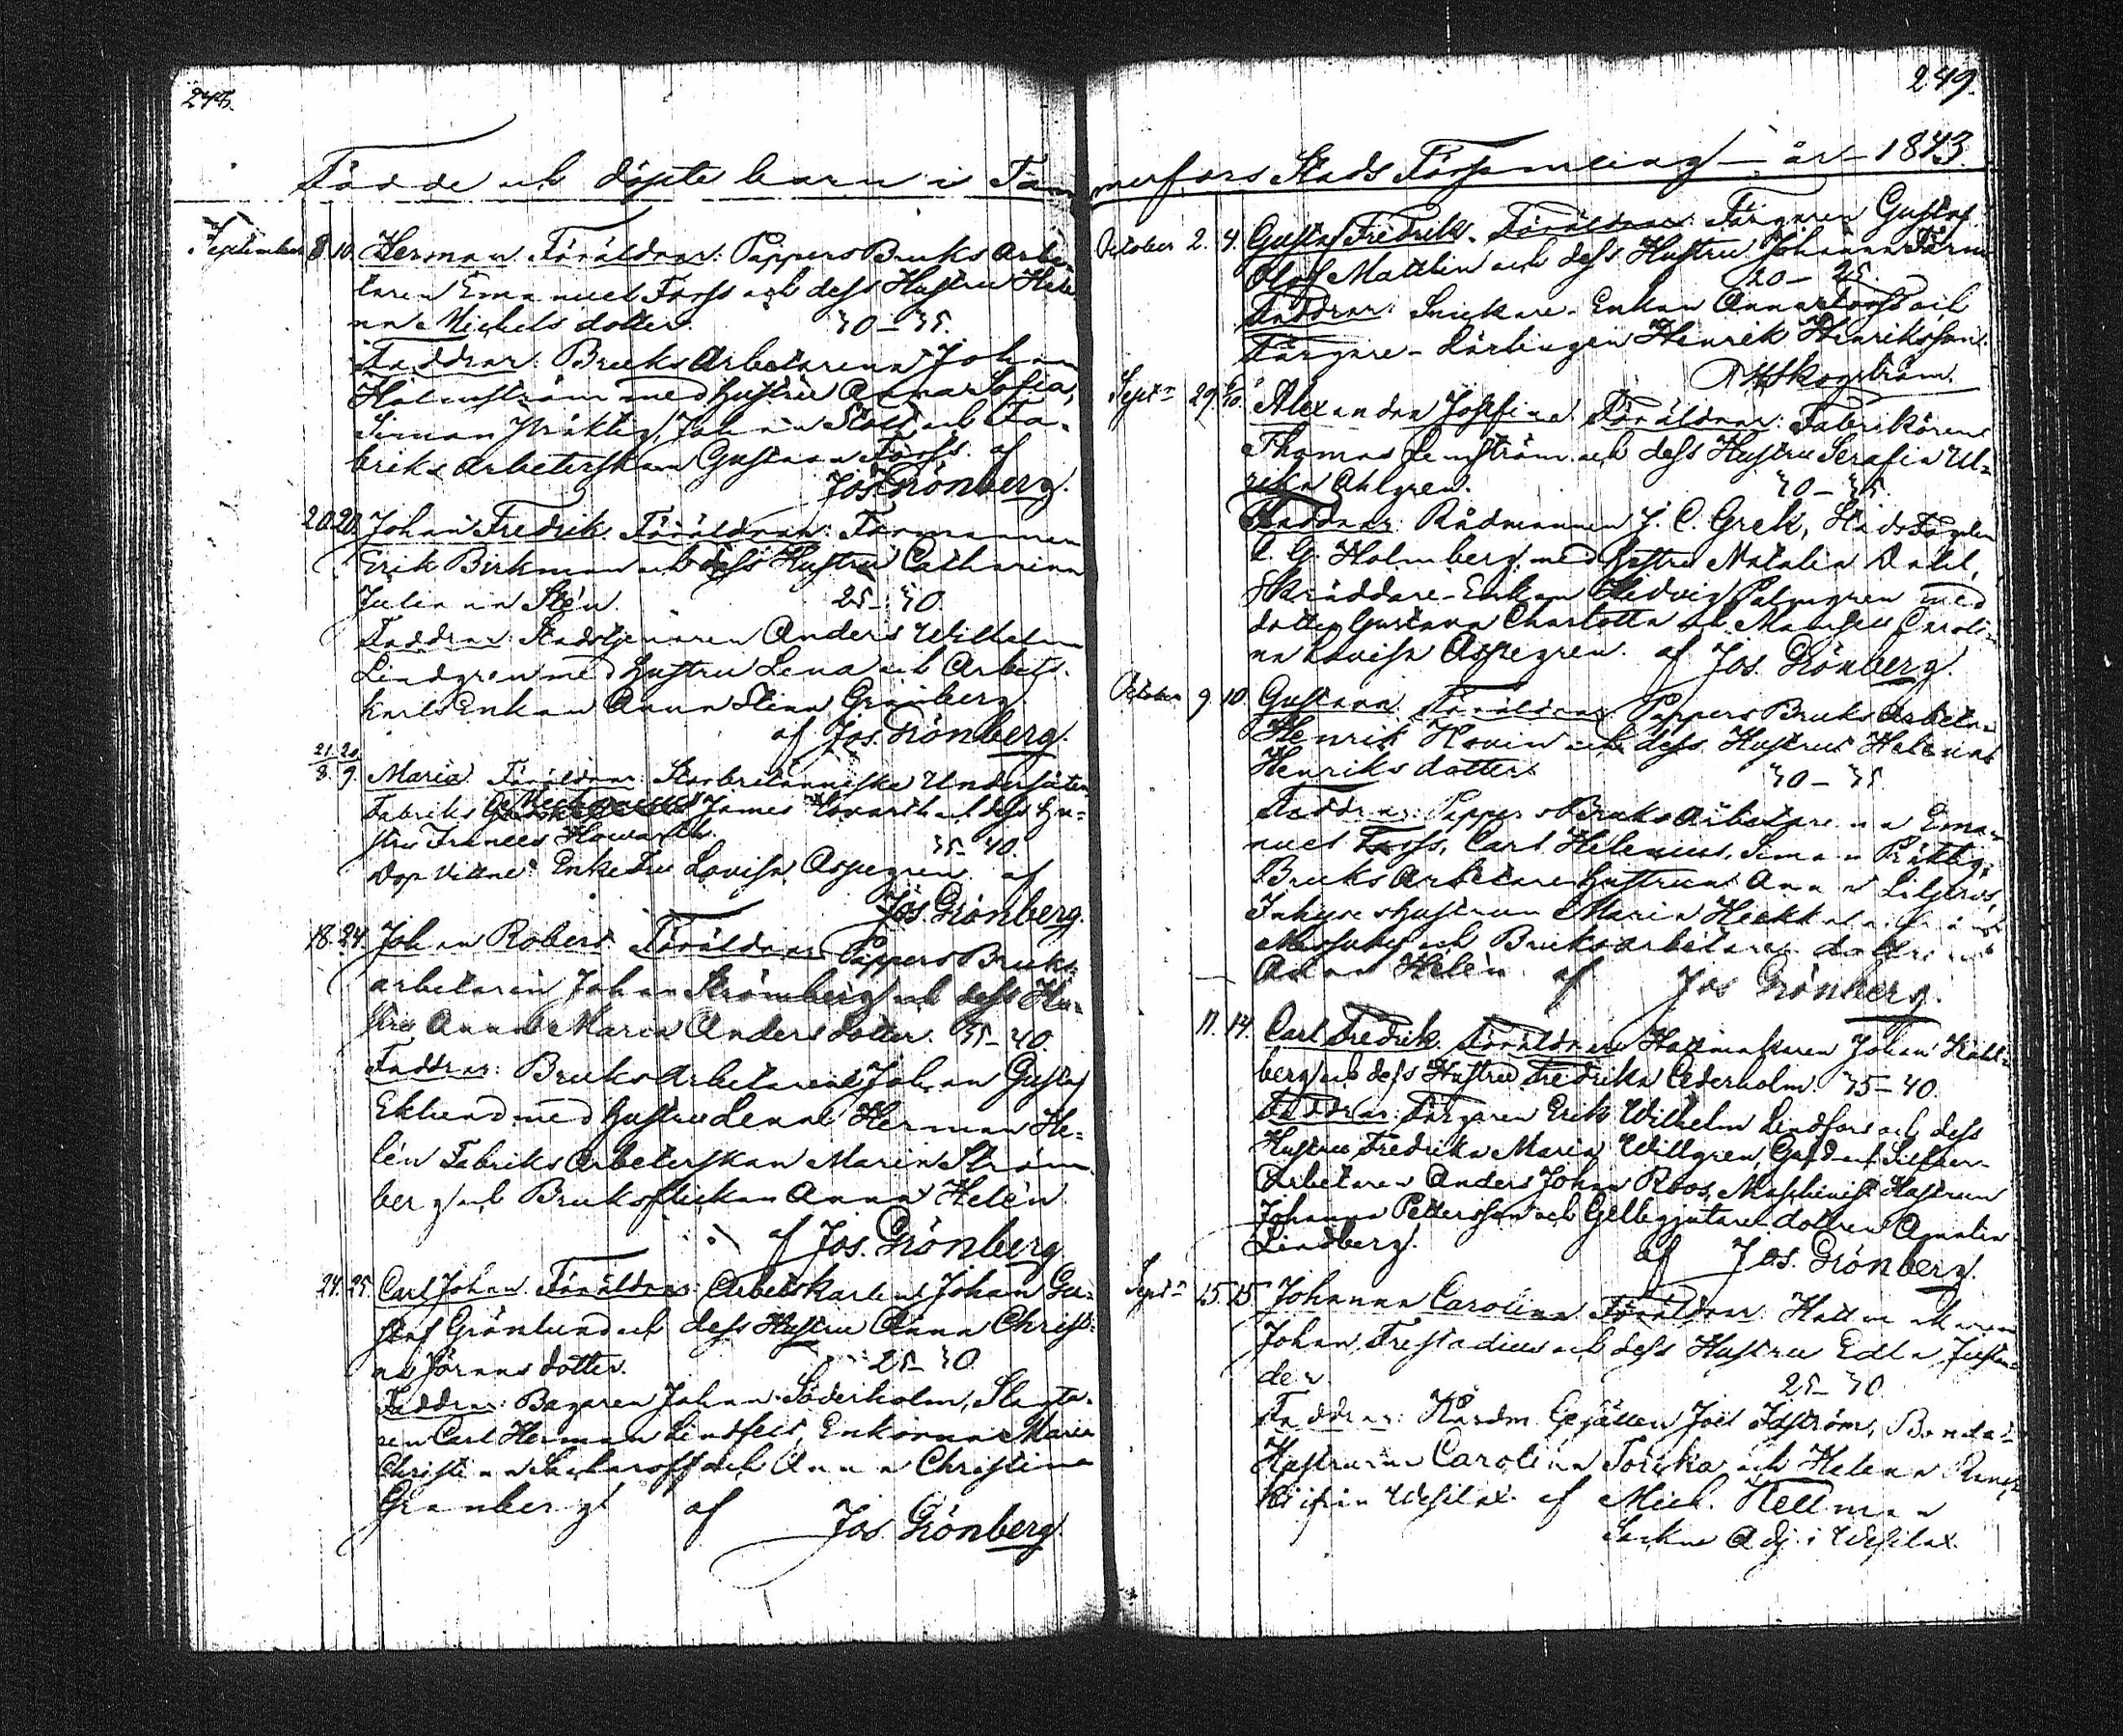 248.
Födde och döpte barn i Tam
September 8. 10. Herman. Föräldrar: PappersBruks Arbe-
taren Emanuel Forss och dess Hustru Hele
na Michelsdotter. 30–35.
Faddrar: BruksArbetarena Johan
Holmström med hustru Anna Sofia,
Simon Präktig, Johan och Fa-
briks Arbeterskan Gustava Forss. af
Jos. Grönberg.
20. 20. Johan Fredrik. Föräldrar: Formannen
Erik Birkman och dess Hustru Catharina
Juliana Stén. 25–30.
Faddrar: Stadstjenaren Anders Wilhelm
Lindgren med hustru Lena och Arbets-
karls Enkan Anna Stina Grönberg.
af Jos. Grönberg.
21. 20.
8. 9. Maria. Föräldrar: Storbritanniske Undersåten
Fabriks Mechanicus James Howarth och dess Hu-
stru Frances Howarth. 35–40.
Dop Vittne: Enkefru Lovisa Aspegren. af
Jos. Grönberg.
18. 24. Johan Robert. Föräldrar: PappersBruks
arbetaren Johan Strömberg och dess Hu-
stru Anna Maria Andersdotter. 35–40.
Faddrar: BruksArbetarene Johan Gustaf
Eklund med hustru Lena Herman He-
lén FabriksArbeterskan Maria Ström-
berg och Bruksflickan Anna Helén
af Jos. Grönberg
24. 25. Carl Johan. Föräldrar: Arbetskarlen Johan Gu-
staf Grönlund och dess Hustru Anna Christi-
na Jöransdotter. 25–30
Faddrar: Bagaren Johan Söderholm, Slagta-
ren Carl Herman Lindfelt, Enkorna Maria
Christina och Anna Christina
Granberg af Jos. Grönberg.
249.
merfors Stads Församling – år – 1843.
October 2. 4. Gustaf Fredrik. Föräldrar: Färgaren Gustaf
Olof Mattlin och dess Hustru Johanna
20–25.
Faddrar: Snickare-Enkan Anna och
Färgare-Lärlingen Henrik Henriksson.
Skogström.
Septr 29. Alexandra Josefina. Föräldrar: Fabrikören
Thomas och dess Hustru Serafia Ul-
rika Ahlgren. 30–35.
Faddrar: Rådmannen J. C. Grek, StadsFogden
C. G. Holmberg med hustru Natalia Dahl,
Skräddare-Enkan Hedvig Palmgren med
dotter Gustava Charlotta och Mamsell Caroli
na Lovisa Aspegren. af Jos. Grönberg.
October 9. 10. Gustava. Föräldrar: PappersBruks Arbeta-
Henrik och dess Hustru Helena
Henriksdotter. 30–35.
Faddrar: PappersBruks Arbetarena Ema-
nuel Forss, Carl Helenius, Simon Präktig,
BruksArbetareHustrun Anna
Inhyses hustrun Maria
och Bruksarbetare dottren
Anna Helén af Jos Grönberg.
11. 14. Carl Fredrik. Föräldrar: Hattmakaren Johan
berg och dess Hustru Fredrika Cederholm. 35–40.
Faddrar: Färgaren Erik Wilhelm Lindfors och dess
Hustru Fredrika Maria Willgren, Guld och Silfver-
Arbetaren Anders Johan Roos, Maschinist Hustrun
Johanna Pettersson och Gelbgjutare dottren Amalia
Lindberg. af Jos. Grönberg.
Septr 15. 15 Johanna Carolina. Föräldrar: Hattmakaren
Johan Frestadius och dess Hustru Edla
der. 25–30.
Faddrar: Gesällen Joel, Bonda-
Hustrurna Carolina och Helena
ifrån Wesilax. af Mich. Hellman
Sockne Adj. i Wesilax.